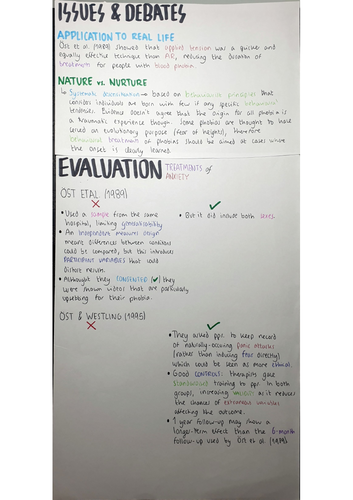 ISSUES & DEBATES
APPLICATION TO REAL LIFE
Öst et al. (1989) showed that applied tension was a quicker and
equally effective technique than AR, reducing the duration of
treatment for people with blood phobia.
NATURE vs. NURTURE
↳ Systematic desensitisation → based on behaviourist principles that
consider individuals are born with few if any specific behavioural
tendencies. Evidence doesn't agree that the origin for all phobias is
a traumatic experience though. Some phobias are thought to have
served an evolutionary purpose (fear of heights), therefore
behavioural treatments of phobias should be aimed at cases where
the onset is clearly learned.
EVALUATION TREATMENTS of
ANXIETY
ÖST ETAL (1989)
✗
• Used a sample from the same
hospital, limiting generalisability
• An independent measures design
meant differences between conditions
could be compared, but this introduces
PARTICIPANT VARIABLES that could
distort
• Although they CONSENTED (✓) they
were shown videos that are particularly
upsetting for their phobia.
✓
• But it did include both sexes.
ÖST & WESTLING (1995)
✗
✓
• They asked ppt. to keep record
of naturally-occuring panic attacks
(rather than inducing fear directly)
which could be seen as more ethical.
• Good CONTROLS: therapists gave
standardised training to ppt. in both
groups, increasing validity as it reduces
the chances of extraneous variables
affecting the outcome.
• 1 year follow-up may show a
longer-term effect than the 6-month
follow-up used by Öst et al (1989).